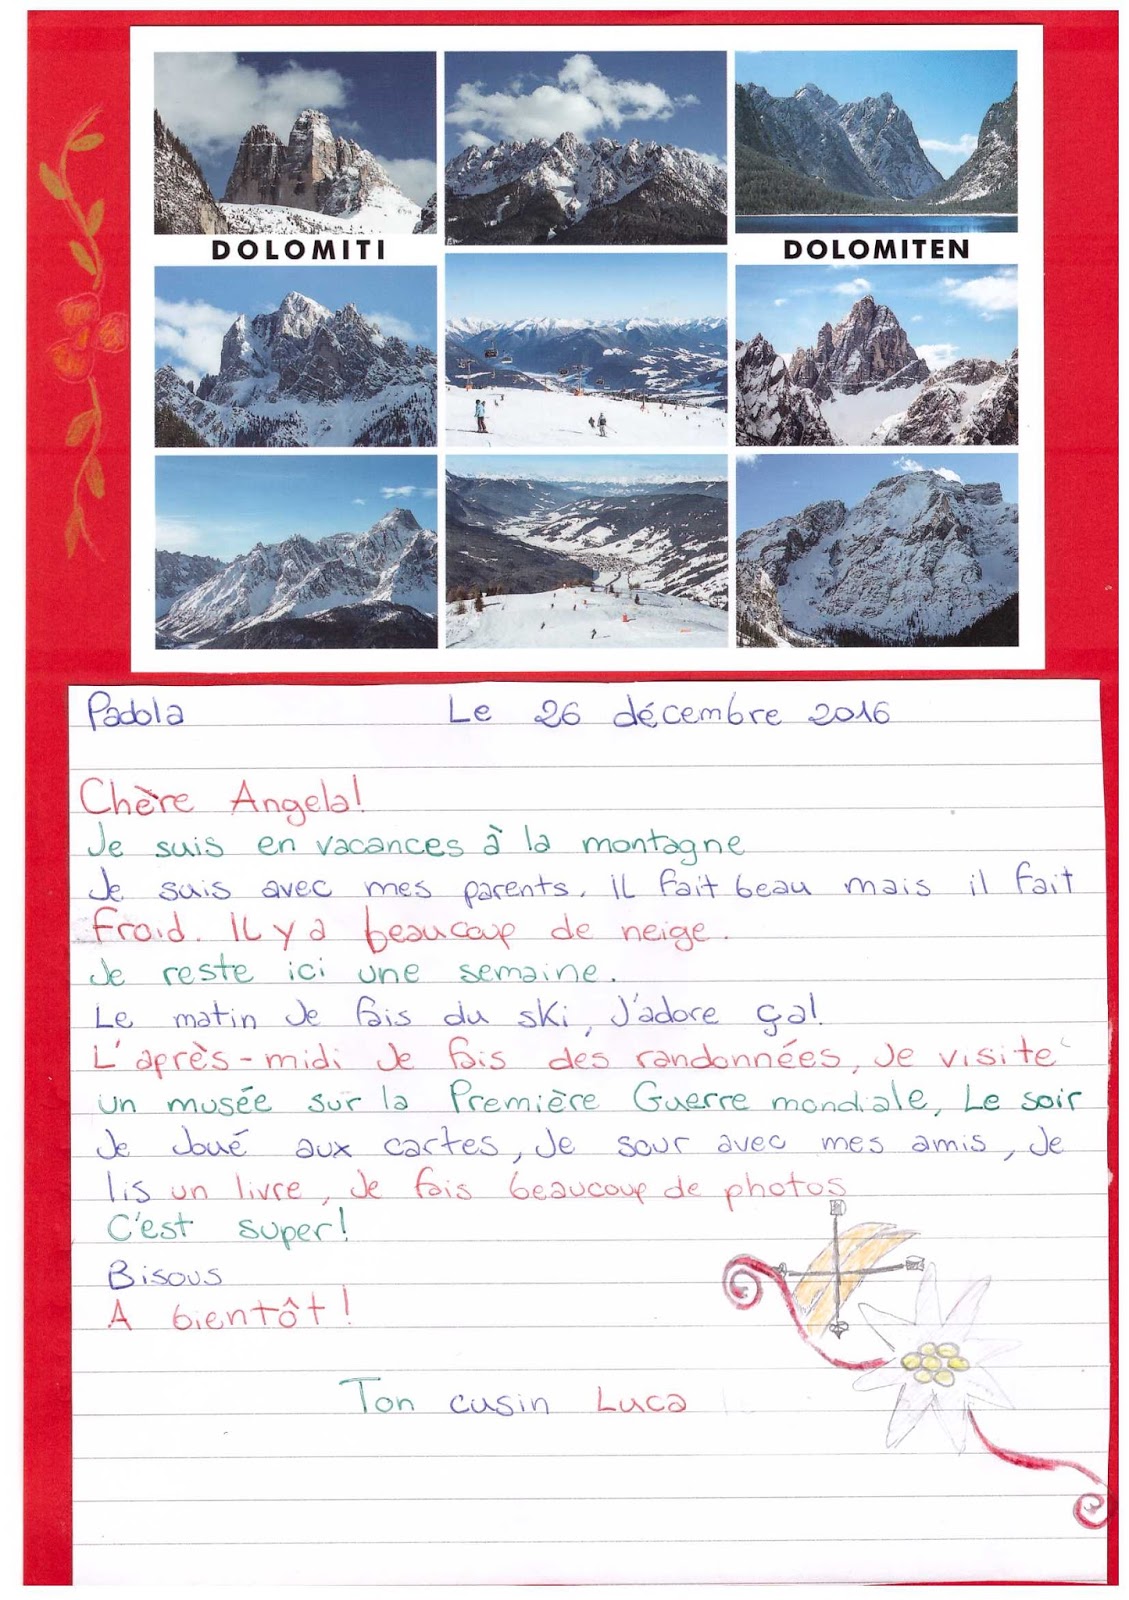 DOLOMITI
DOLOMITEN
Padola Le 26 décembre 2016
Chère Angela!
Je suis en vacances à la montagne
Je suis avec mes parents. il fait beau mais il fait
froid. Il y a beaucoup de neige.
Je reste ici une semaine.
Le matin Je fais du ski, J'adore ça!
L'après-midi Je fais des randonnées, Je visite
un musée sur la Première Guerre mondiale, Le soir
Je Joué aux cartes, Je sour avec mes amis, Je
lis un livre, Je fais beaucoup de photos
C'est super!
Bisous
A bientôt!
Ton cusin Luca